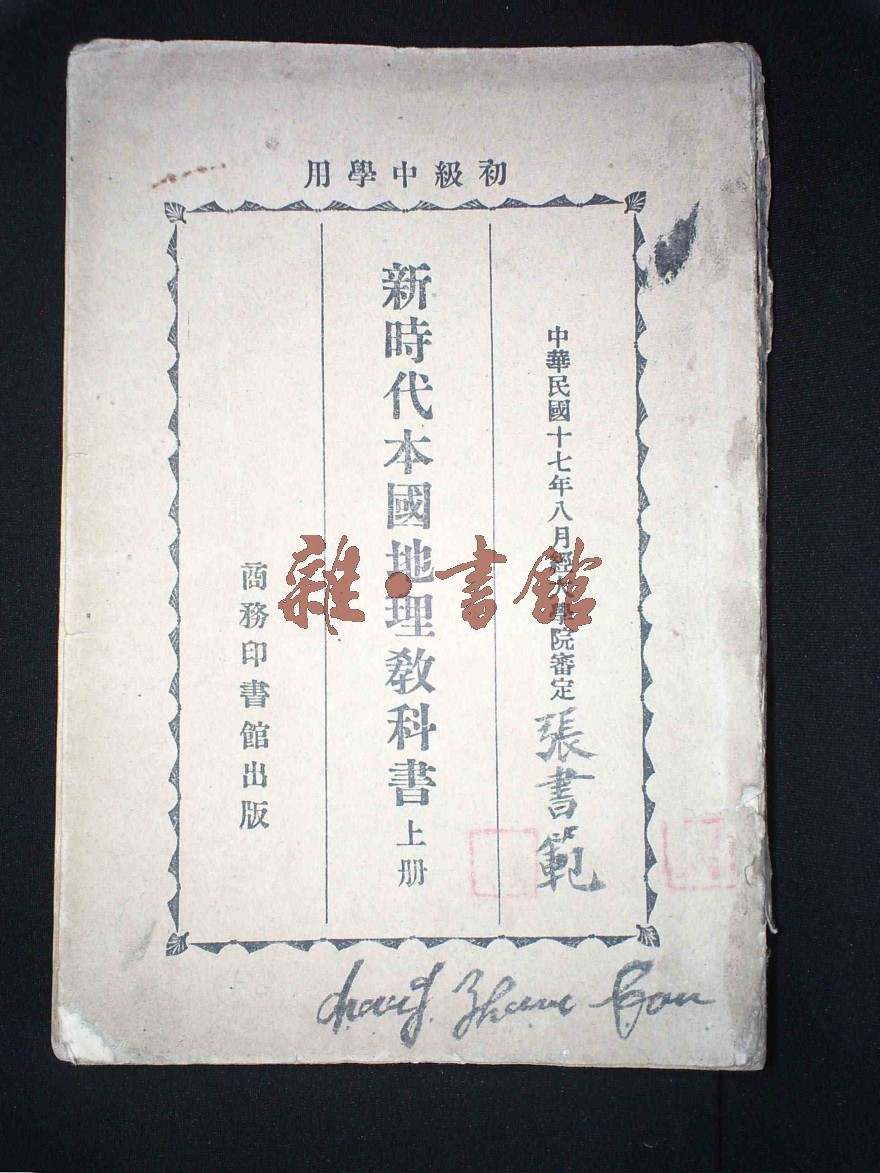 初級中學用
中華民國十七年八月經大學院審定
張書範
新時代本國地理教科書上册
商務印書館出版
雜·書館